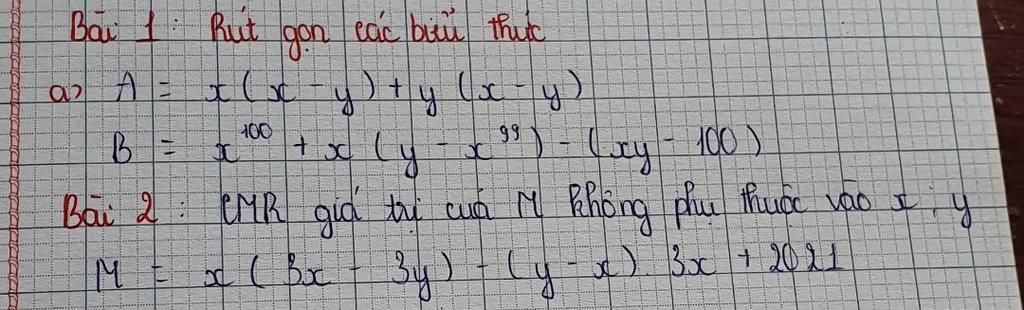 Bài 1 : Rút gọn các biểu thức
a) A = x(x - y) + y (x - y)
B = x¹⁰⁰ + x (y - x⁹⁹) - (xy - 100)
Bài 2 : CMR giá trị của M không phụ thuộc vào x, y
M = x ( 3x - 3y) - (y - x). 3x + 2021